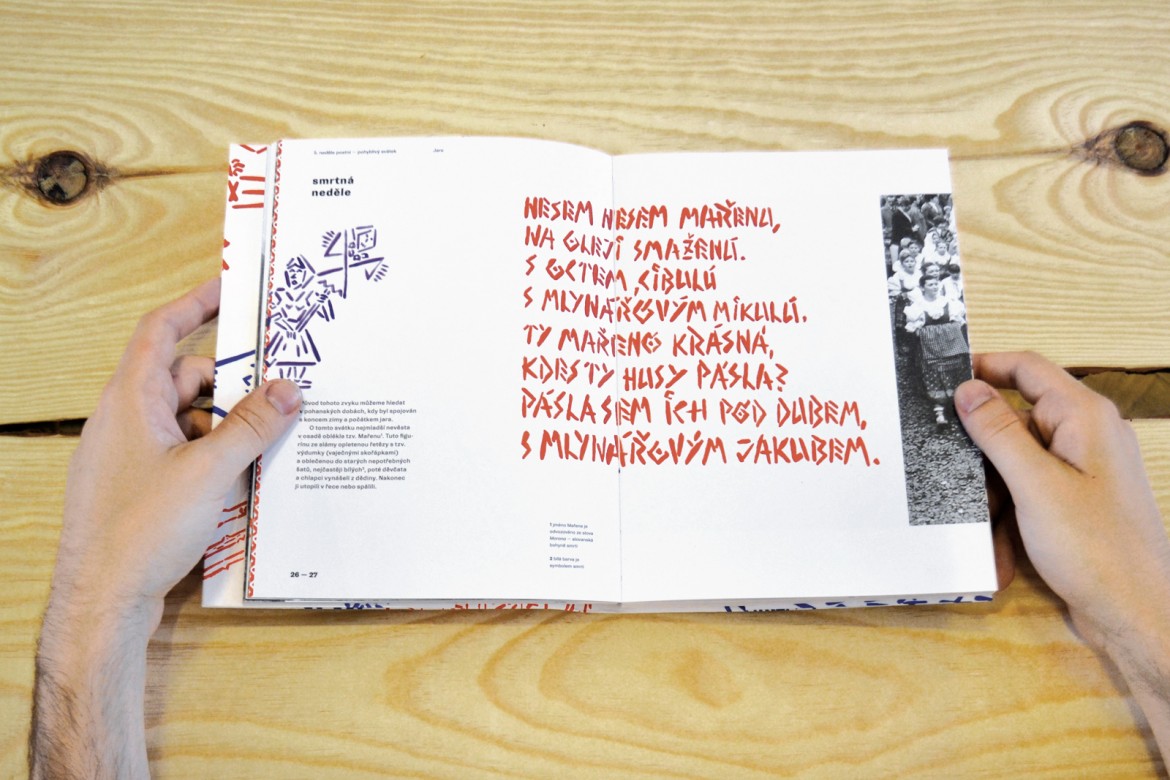 5. neděle postní – pohyblivý svátek
Jaro
smrtná
neděle
NESEM NESEM MAŘENU,
NA OLEJÍ SMAŽENÚ.
S OCTEM, CIBULÚ
S MLYNÁŘOVÝM MIKULÚ.
TY MAŘENO KRÁSNÁ,
KDES TY HUSY PÁSLA?
PÁSLA SEM ICH POD DUBEM,
S MLYNÁŘOVÝM JAKUBEM.
Původ tohoto zvyku můžeme hledat
v pohanských dobách, kdy byl spojován
s koncem zimy a počátkem jara.
O tomto svátku nejmladší nevěsta
v osadě oblékla tzv. Mařenu¹. Tuto figu-
rínu ze slámy opletenou řetězy a tzv.
výdumky (vaječnými skořápkami)
a oblečenou do starých nepotřebných
šatů, nejčastěji bílých², poté děvčata
a chlapci vynášeli z dědiny. Nakonec
ji utopili v řece nebo spálili.
1 jméno Mařena je
odvozeno ze slova
Morana – slovanská
bohyně smrti
2 bílá barva je
symbolem smrti
26 — 27